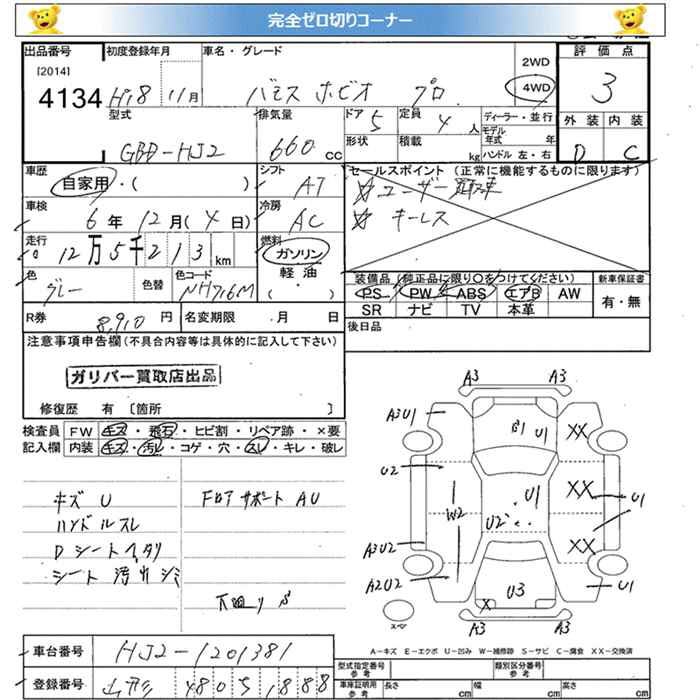 完全ゼロ切りコーナー
出品番号 初度登録年月 車名・グレード 評価点
[2014] 2WD
4134 H18 11月 バモス ホビオ プロ 4WD 3
型式 排気量 ドア 5 定員 4人 ディーラー・並行 外装 内装
GBD-HJ2 660cc 形状 積載 kg モデル年式 年 ハンドル 左・右 D C
車歴 シフト セールスポイント (正常に機能するものに限ります)
自家用・( ) AT ☆ユーザー買取車
車検 冷房 ☆ キーレス
6年 12月(4日) AC
走行 燃料
12万5千213km ガソリン
色 色替 色コード 軽油 装備品 (純正品に限り○をつけてください) 新車保証書
グレー NH716M (・) PS PW ABS エアB AW 有・無
SR ナビ TV 本革
R券 8,910円 名変期限 ・月 日 後日品
注意事項申告欄(不具合内容等は具体的に記入して下さい)
ガリバー買取店出品
修復歴 有 〔箇所 〕
検査員 FW キズ・飛石・ヒビ割・リペア跡・×要
記入欄 内装 キズ・汚れ・コゲ・穴・スレ・キレ・破レ
キズ U
ハンドルスレ
Dシートヘタリ
シート 汚れシミ
Fロアサポート AU
下廻りサビ
A3 A3
A3U1 B1 U1 XX
U2 XX
W2 U1 U1
U2
A3U2 XX
A2U2 U3 U1
X
スペア A3 A3
A-キズ E-エクボ U-凹み W-補修跡 S-サビ C-腐食 XX-交換済
車台番号 HJ2-1201381
型式指定番号 参考 類別区分番号 参考
登録番号 山形 480 う 1888
車庫証明用 参考 長さ cm 幅 cm 高さ cm